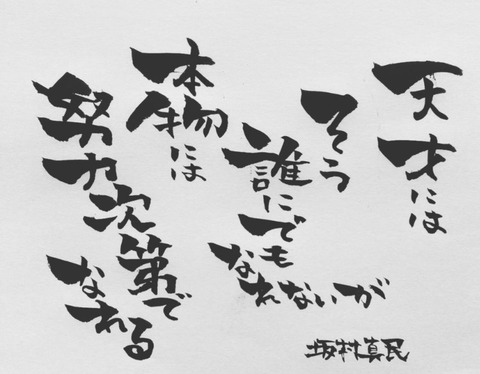 天才には
そう
誰にでも
なれないが
本物には
努力次第で
なれる
坂村真民